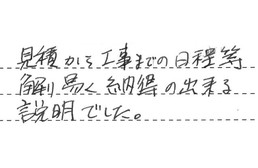 見積から工事までの日程等
解り易く納得の出来る
説明でした。